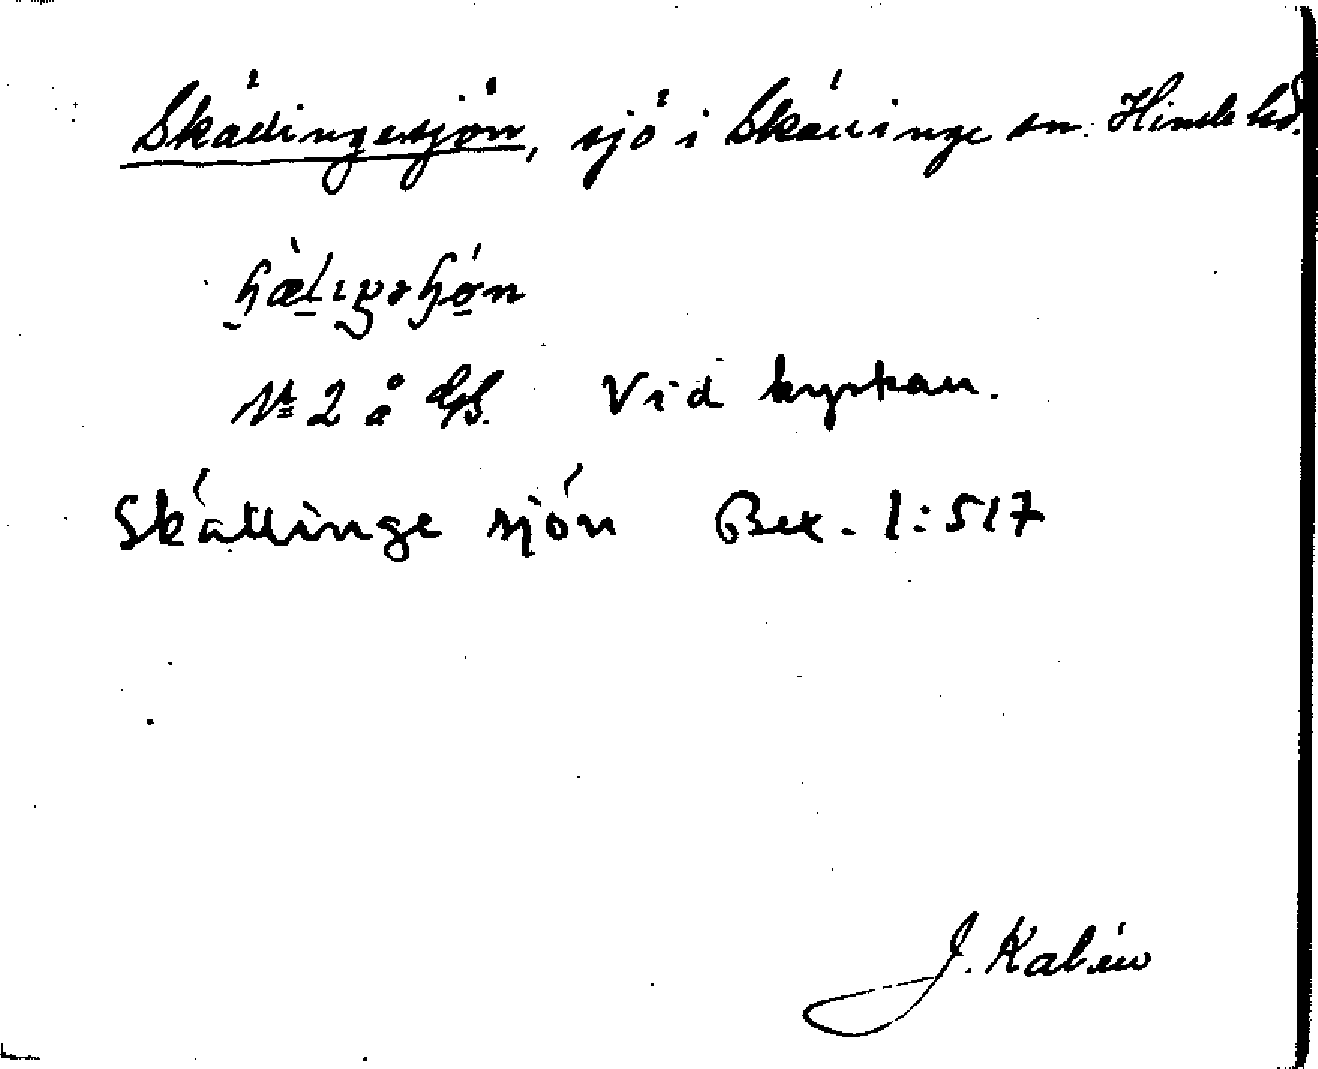 Skädingesjön, sjö i Skällinge sn. Himle hd.
№ 2 å GS. Vid kyrkan.
Skällinge sjön Bex. 1:517
J. Kalén